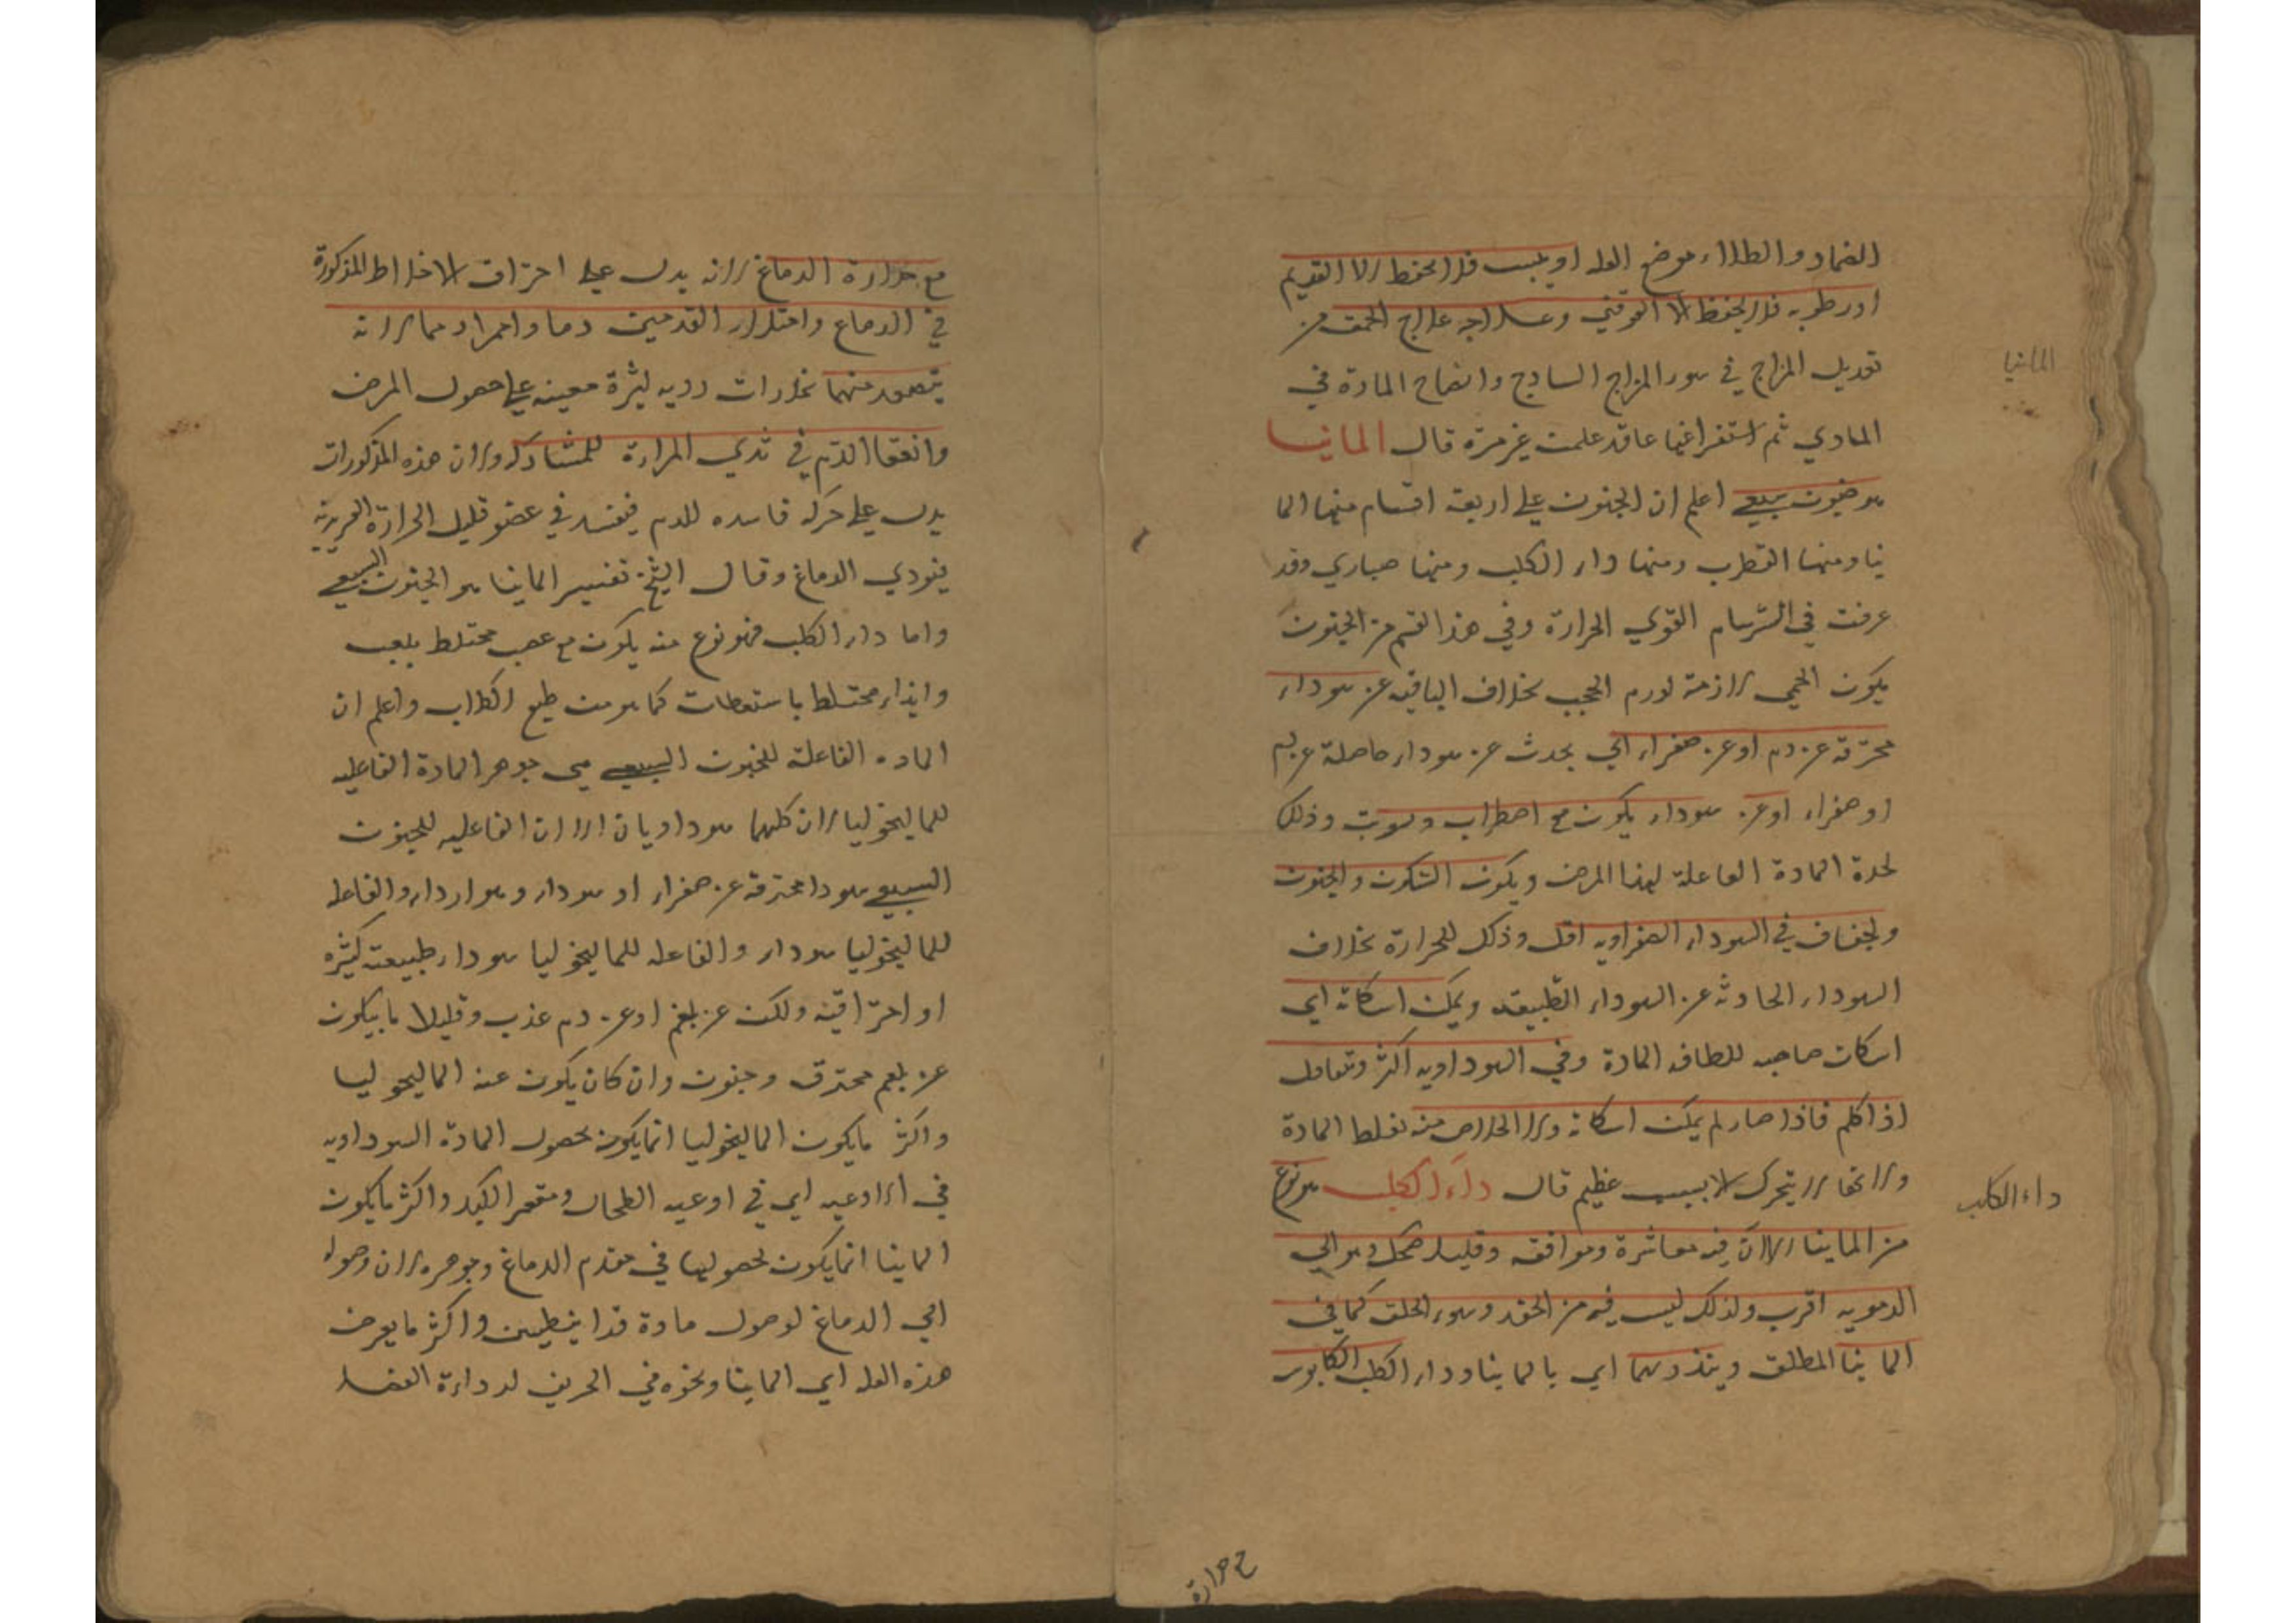 الضماد والطلاء موضع العله او يبست فلا يحفظ الا القديم
او رطوبه فلا يحفظ الا الوقتي وعلاجه علاج الحمق من
تعديل المزاج في سوء المزاج الساذج وانضاج المادة في
المادي ثم استفراغها بما قد علمت غير مرة قال المانيا
المانيا
هو جنون سبعي اعلم ان الجنون علي اربعة اقسام منها الما
نيا ومنها القطرب ومنها داء الكلب ومنها صباري وقد
عرفت في السرسام القوي الحرارة وفي هذا القسم من الجنون
يكون الحمي لازمة لورم الحجب بخلاف الباقيه عن سوداء
محترقة عن دم او عن صفراء اي يحدث عن سوداء حاصلة عن دم
او صفراء او عن سوداء يكون مع اضطراب وتوثب وذلك
لحدة المادة الفاعلة لهذا المرض ويكون السكون والجنون
والجفاف في السوداء الصفراويه اقل وذلك للحرارة بخلاف
السوداء الحادثة عن السوداء الطبيعة ويمكن اسكاته اي
اسكات صاحبه للطافة المادة وفي السوداويه اكثر وتعاقل
اذا كلم فاذا صار لم يمكن اسكاته ولا الخلاص منه لغلظ المادة
ولانها لا يتحرك الا بسبب عظيم قال داء الكلب هو نوع
داء الكلب
من الماينا الا ان فيه معاشرة وموافقه وقليل ضحك وهو الي
الدمويه اقرب ولذلك ليس فيه من الحقد وسوء الخلق كما في
الماينا المطلق وينذر بهما اي بالماينا وداء الكلب الكابوس
مع حرارة
مع حرارة الدماغ لانه يدل علي احتراق الاخلاط المذكورة
في الدماغ وامتلاء القدمين دما واحمرارهما لانه
يتصعد منهما بخارات رديه كثيرة معينه علي حصول المرض
وانعقاد الدم في ثدي المراءة للمشاركه ولان هذه المذكورات
يدل علي حركه فاسده للدم فيفسد في عضو قليل الحرارة الغريزية
فيودي الدماغ وقال الشيخ تفسير الماينا هو الجنون السبعي
واما داء الكلب فهو نوع منه يكون مع غضب مختلط بلعب
وايذاء مختلط باستعطاف كما هو من طبع الكلاب واعلم ان
الماده الفاعلة للجنون السبعي هي جوهر المادة الفاعليه
للماليخوليا لان كليهما سوداويان الا ان الفاعليه للجنون
السبعي سوداء محترقة عن صفراء او سوداء وهو اردا والفاعله
للماليخوليا سوداء والفاعله للماليخوليا سوداء طبيعته كثيره
او احتراقيه ولكن عن بلغم او عن دم عذب وقليلا ما يكون
عن بلغم محترق وجنون وان كان يكون عنه الماليخوليا
واكثر ما يكون الماليخوليا انما يكون بحصول المادة السوداويه
في الاوعيه اي في اوعيه الطحال ومقعر الكبد واكثر ما يكون
الماينا انما يكون لحصولها في مقدم الدماغ وجوهره لان وصوله
الي الدماغ لوصول مادة قرانيطيس واكثر ما يعرض
هذه العله اي الماينا ونحوه في الخريف لرداءة الفضل